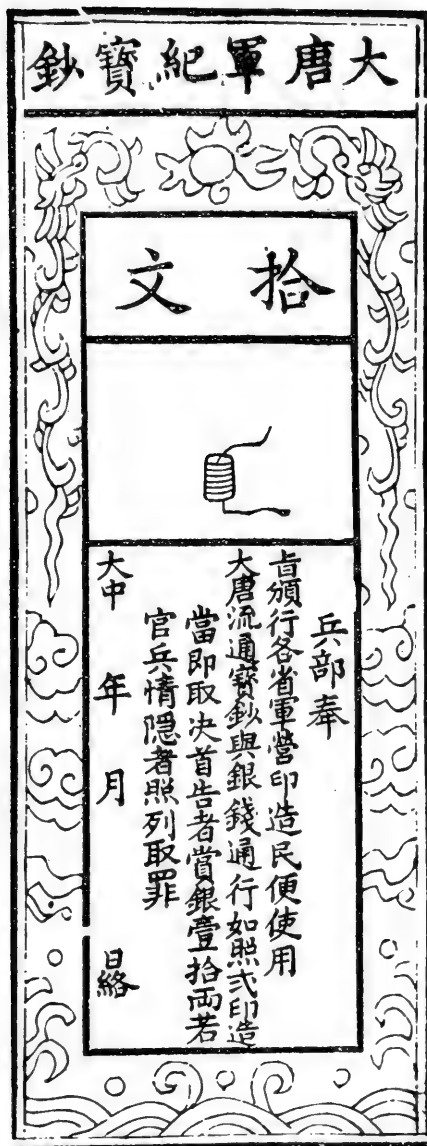 大唐軍紀寶鈔
拾文
兵部奉
旨頒行各省軍營印造民便使用
大唐流通寶鈔與銀錢通行如照弍印造
當即取决首告者賞銀壹拾兩若
官兵情隱者照列取罪
大中 年 月 日絡